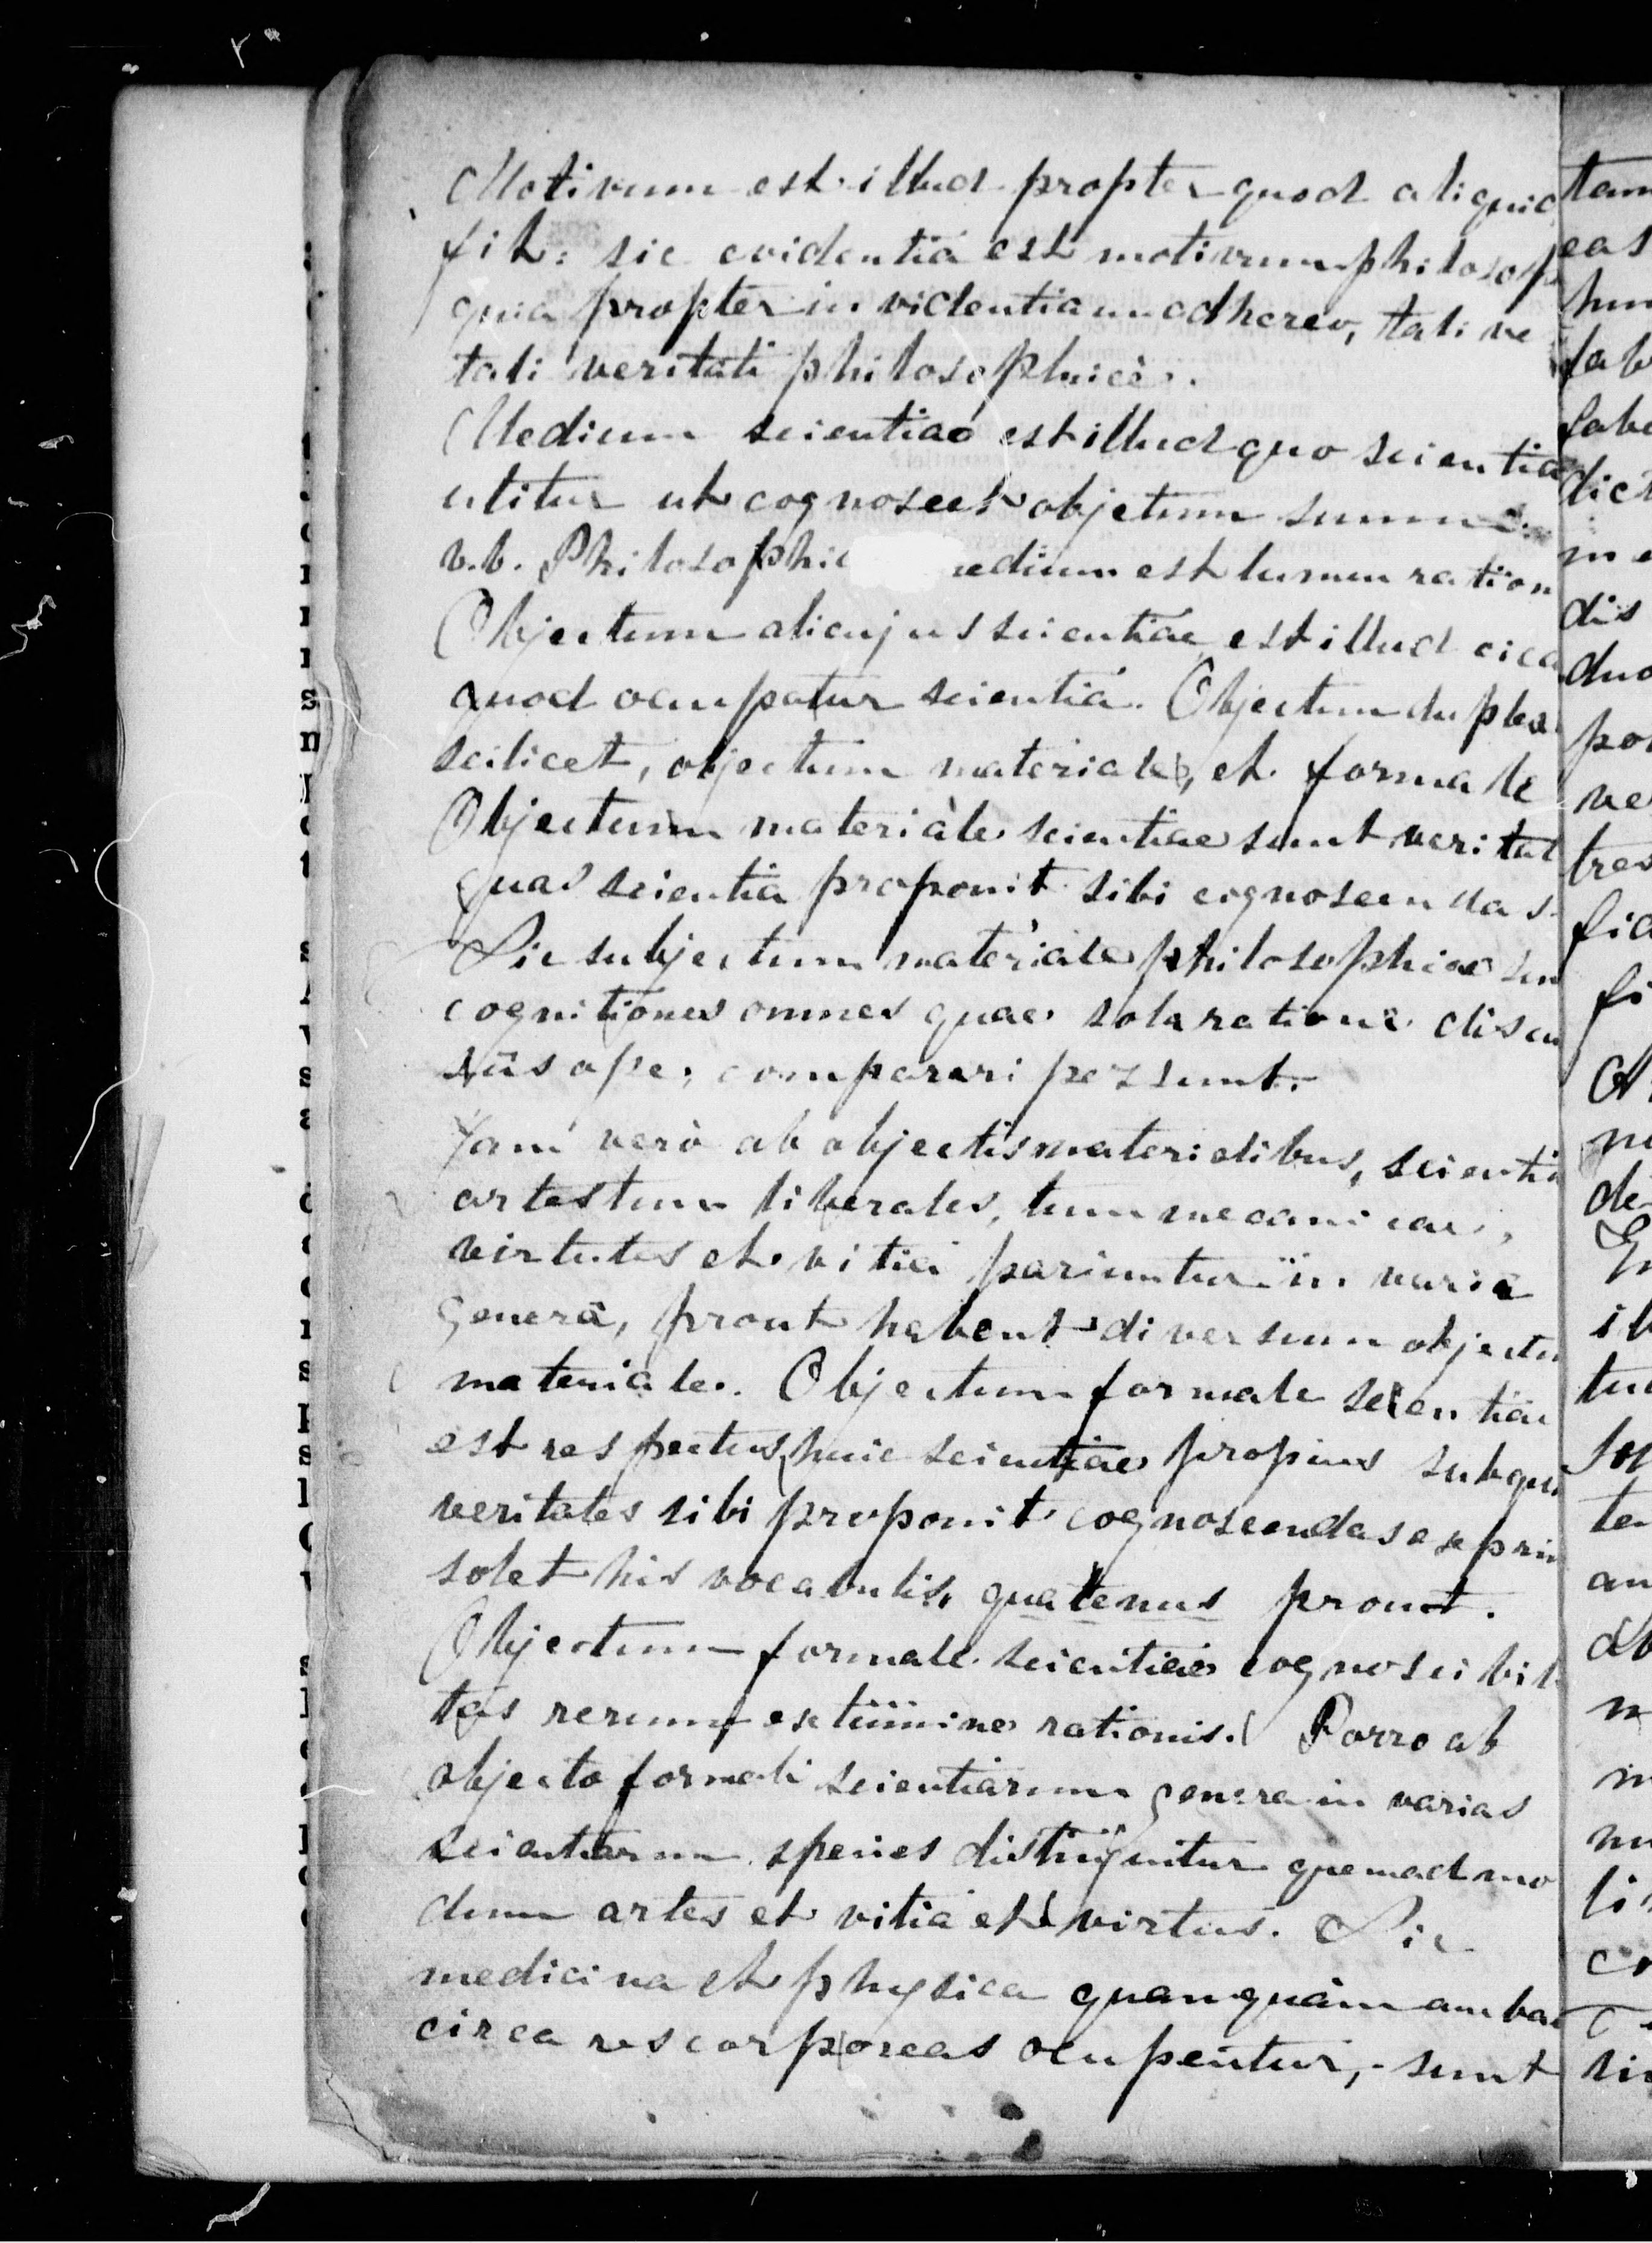 Motivum est illud propter quod aliquid
fit: sic evidentia est motivum philosop
quia propter in videntiam adhereo, tali ve
tali veritati philosophicè.
Medium scientiae est illud quo scientia
utitur ut cognoscet objetum suum
v.b. Philosophic edium est lumen ration
Objectum alicujus scientiae est illud cica
quod ocupatur scientia. Objectum duplex
scilicet, objectum materiale, et formale
Objectum materiale scientiae sunt veritat
quas scientia proponit sibi cognoscendas
Sic subjectum materiale philosophiae sun
cognitiones omnes quae sola ratione discu
sus ope, comparari possunt.
Jam verò ab objectis materialibus, scientia
artes tum liberales, tum mecanicae,
virtutes et vitia pariuntur in varia
genera, prout habent diversum objectu
materiale. Objectum formale scientiae
est respectus huic scientiae propius sub qu
veritates sibi proponit cognoscendas exprim
solet his vocabulis, quatenus prout.
Objectum formale scientiae cognoscibil
tas rerum ex rationis. Porro ab
objecto formali scientiarum genera in varias
scientiarum species distinguntur quemadmo
dum artes et vitia et virtus. Sic
medicina et physica quanquàm ambae
circa res corporeas ocupentur, sunt